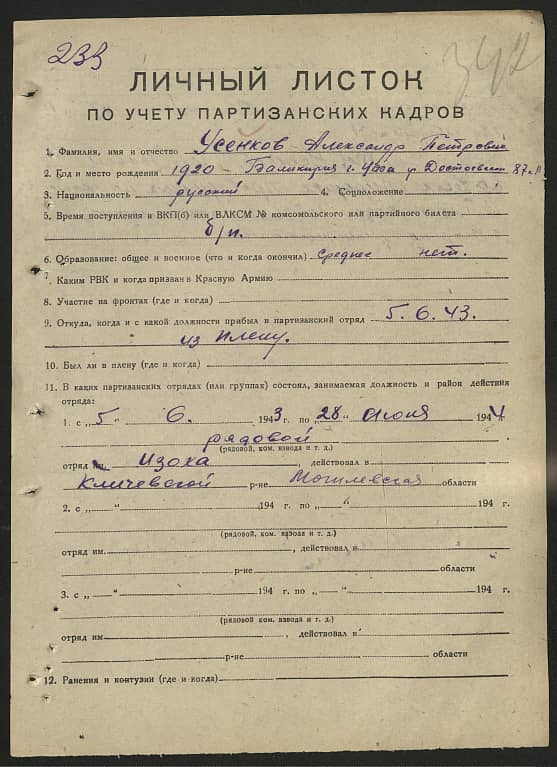 239
342
ЛИЧНЫЙ ЛИСТОК
ПО УЧЕТУ ПАРТИЗАНСКИХ КАДРОВ
1. Фамилия, имя и отчество Усенков Александр Петрович
2. Год и место рождения 1920 - Башкирия г. Уфа у Достоевский 87
3. Национальность русский 4. Соцположение
5. Время поступления в ВКП(б) или ВЛКСМ № комсомольского или партийного билета
б/п.
6. Образование: общее и военное (что и когда окончил) среднее нет.
7. Каким РВК и когда призван в Красную Армию
8. Участие на фронтах (где и когда)
9. Откуда, когда и с какой должности прибыл в партизанский отряд 5.6.43.
из плену.
10. Был ли в плену (где и когда)
11. В каких партизанских отрядах (или группах) состоял, занимаемая должность и район действия
отряда:
1. с „5“ 6. 1943 г. по „28“ июня 1944
рядовой
(рядовой, ком. взвода и т. д.)
отряд им. Изоха, действовал в
Кличевской р-не Могилевская области
2. с „ “ 194 г. по „ “ 194 г.
(рядовой, ком. взвода и т. д.)
отряд им. , действовал в
р-не области
3. с „ “ 194 г. по „ “ 194 г.
(рядовой, ком. взвода и т. д.)
отряд им. , действовал в
р-не области
12. Ранения и контузии (где и когда)